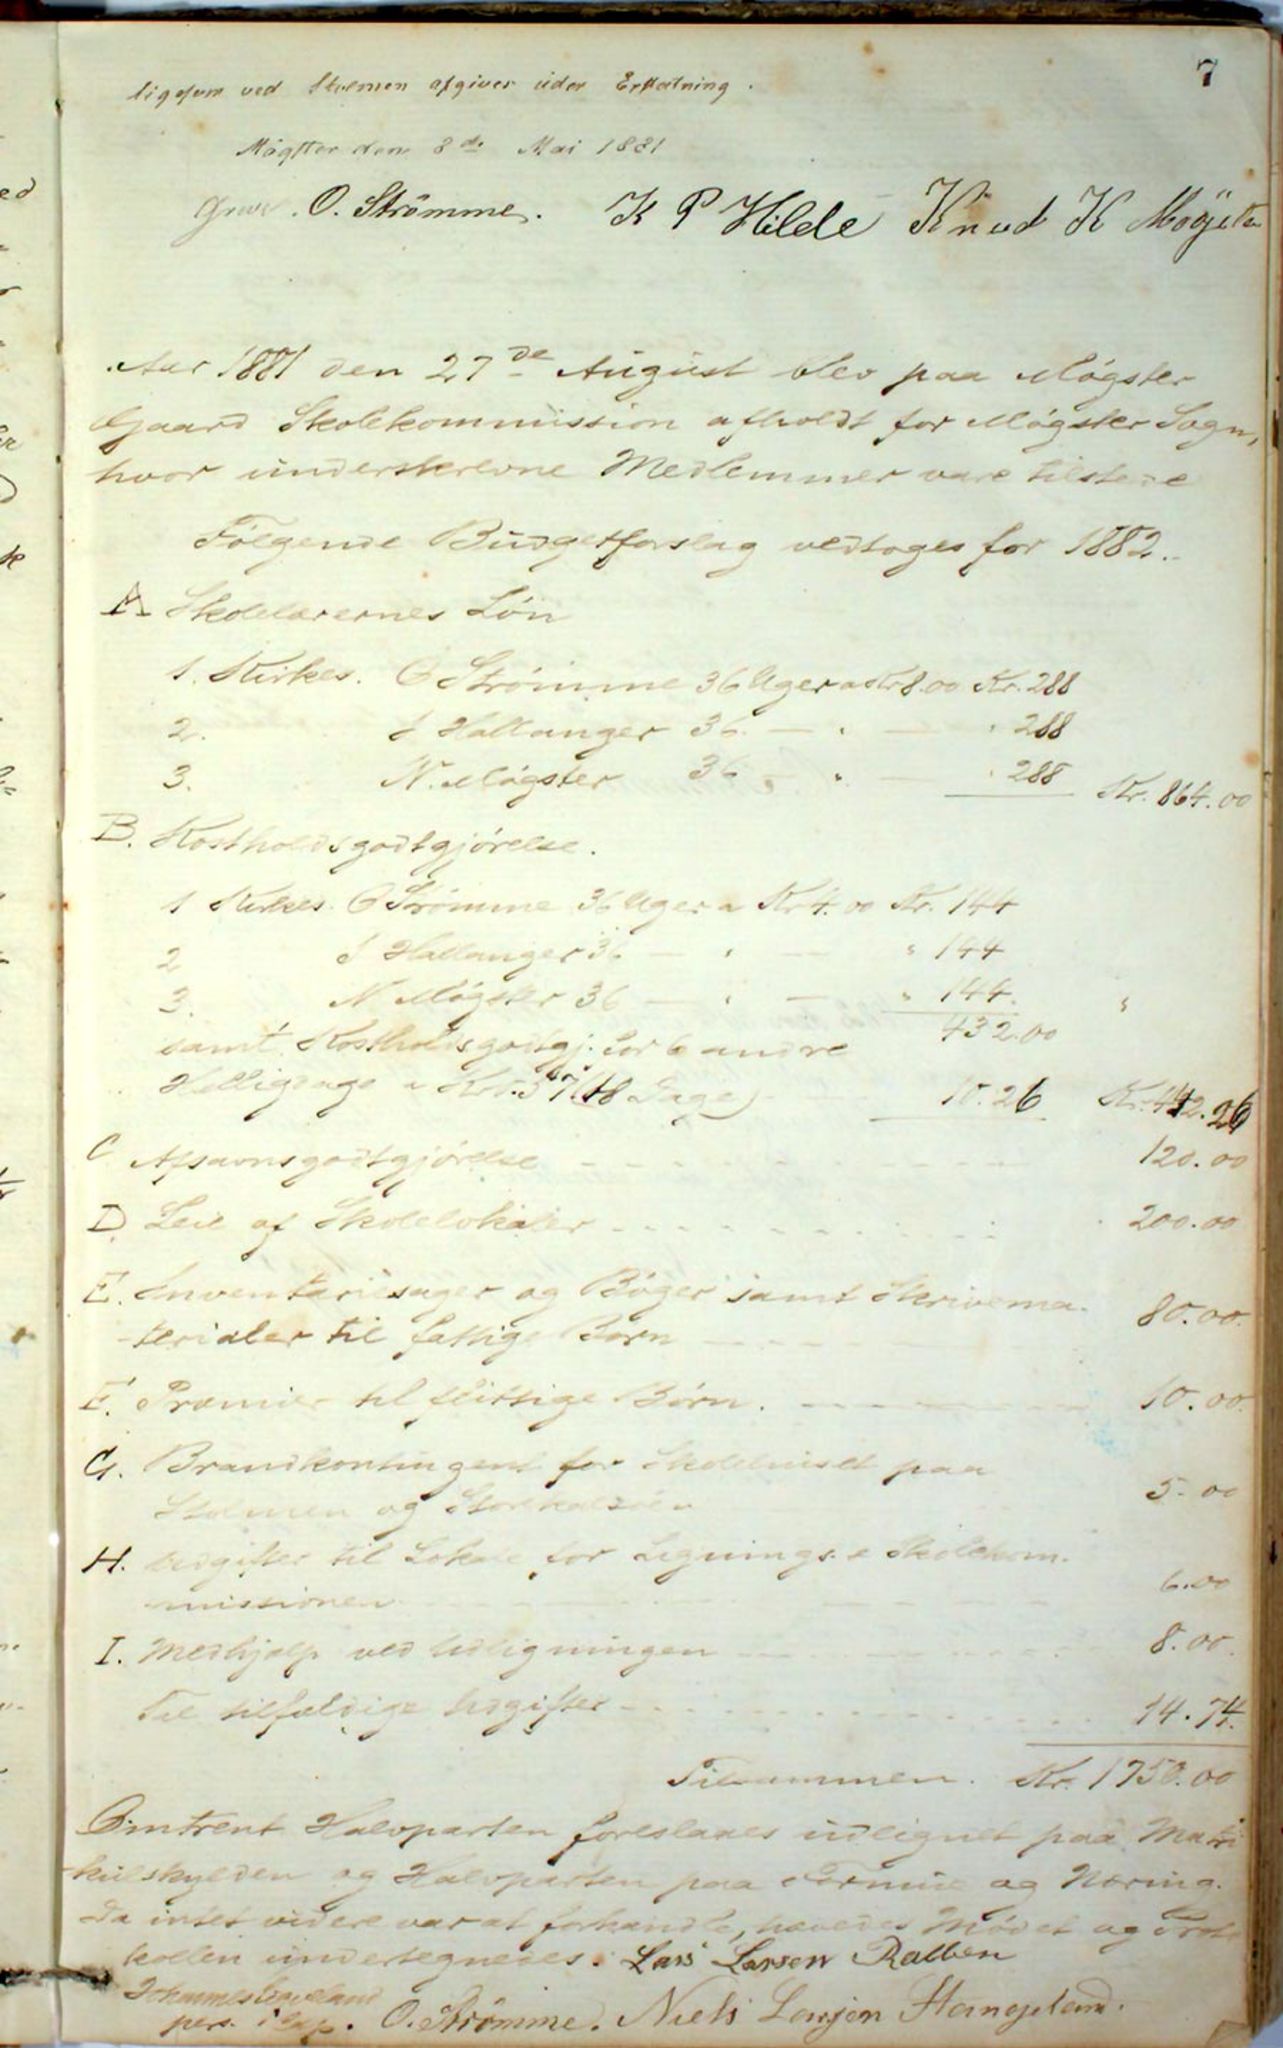 7
ligesom ved Stolmen afgiver uden Erstatning.
Møgster den 8de Mai 1881
O. Strömme. K P Hilde Knud K Møgster
Aar 1881 den 27de August blev paa Møgster
Gaard Skolekommission afholdt for Møgster Sogn,
hvor underskrevne Medlemmer vare tilstede
Følgende Budgetforslag vedtoges for 1882.
A Skolelærernes Løn
1. Kirkes. O Strømme 36 Uger a Kr 8.00 Kr. 288
2. J Hallanger 36 — " — " 288
3. N. Møgster 36 — " — " 288 Kr. 864.00
B. Kostholdsgodtgjørelse.
1 Kirkes. O Strømme 36 Uger a Kr 4.00 Kr. 144
2 J Hallanger 36 — " — " 144
3. N Møgster 36 — " — " 144. "
samt Kostholdsgodtgj. for 6 andre 432.00
Helligdage a Kr 0.57 (18 Dage) 10.26 Kr. 442.26
C Afsavnsgodtgjørelse 120.00
D. Leie af Skolelokaler 200.00
E. Inventariesager og Bøger samt Skrivema-
-terialer til fattige Børn 80.00.
F. Præmier til flittige Børn. 10.00.
G. Brandkontingent for Skolehuset paa
Stolmen og Storekalsøen 5.00
H. Udgifter til Lokale for Lignings- & Skolekom-
missionen 6.00
I. Medhjælp ved Udligningen 8.00.
Til tilfældige Udgifter 14.74.
Tilsammen. Kr. 1750.00
Omtrent Halvparten foreslaaes udlignet paa Matri-
kulskylden og Halvparten paa Formue og Næring.
Da intet videre var at forhandle, hævedes Mødet og Proto-
kollen undertegnedes. Lars Larsen Rabben
Johannes
pers. Kap. O. Strömme. Niels Larsen Stangeland.